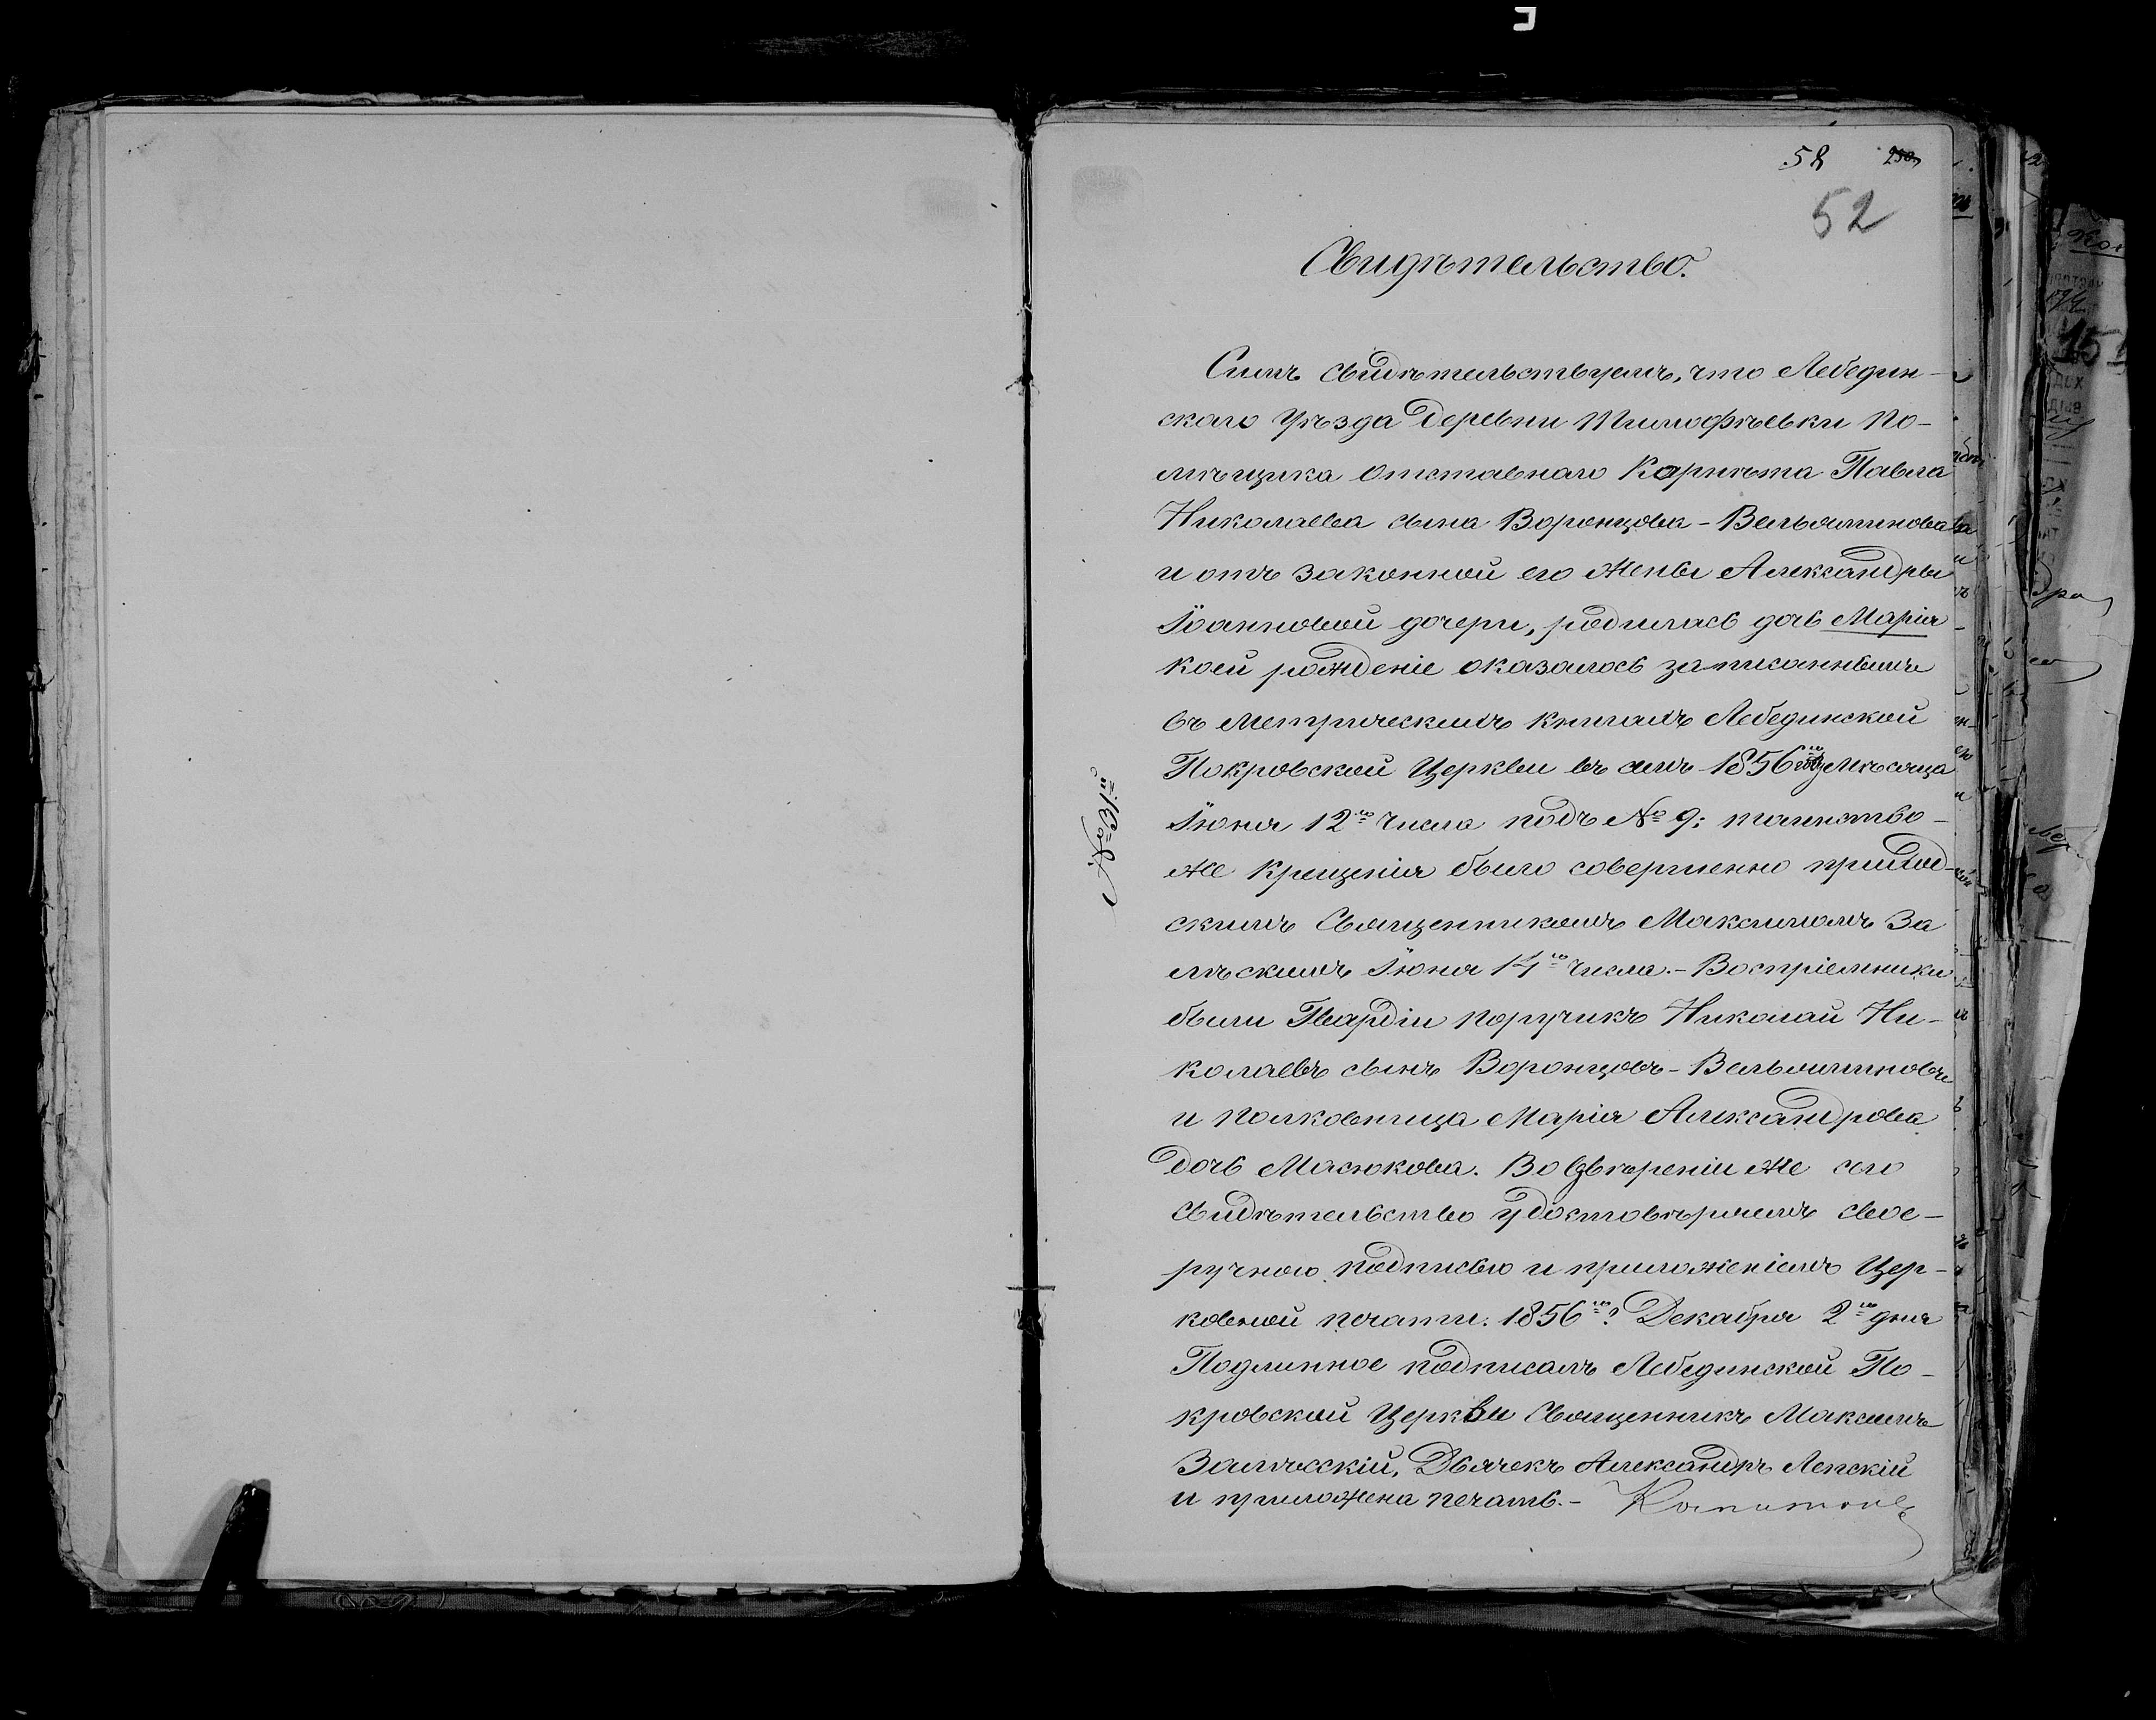 58
52
Свидѣтельство.
Симъ свидѣтельствуемъ, что Лебедин-
скаго Уѣзда Деревни Тимофѣевки По-
мѣщика Отставнаго Корнета Павла
Николаева сына Воронцова-Вельяминова
и отъ законной его жены Александры
Іоанновой дочери, родилась дочь Марія
коей рожденіе оказалось записаннымъ
въ Метрическихъ книгахъ Лебединской
Покровской Церкви въ семъ 1856го году Мѣсяца
Іюня 12го числа подъ № 9; таинство-
же крещенія было совершенно приход-
скимъ Священникомъ Максимомъ За
мѣскимъ Іюня 14го числа.- Воспріемники
были Гвардіи Поручикъ Николай Ни-
колаевъ сынъ Воронцовъ-Вельяминовъ
и Полковница Марія Александрова
дочь Масюкова. Во увѣреніи же сего
свидѣтельство удостовѣряемъ свое-
ручною подписью и приложеніемъ Цер-
ковной печати. 1856го Декабря 2го дня
Подлинное подписалъ Лебединской По-
кровской Церкви Священникъ Максимъ
Дьячекъ Александръ Ленскій
и приложена печать.-